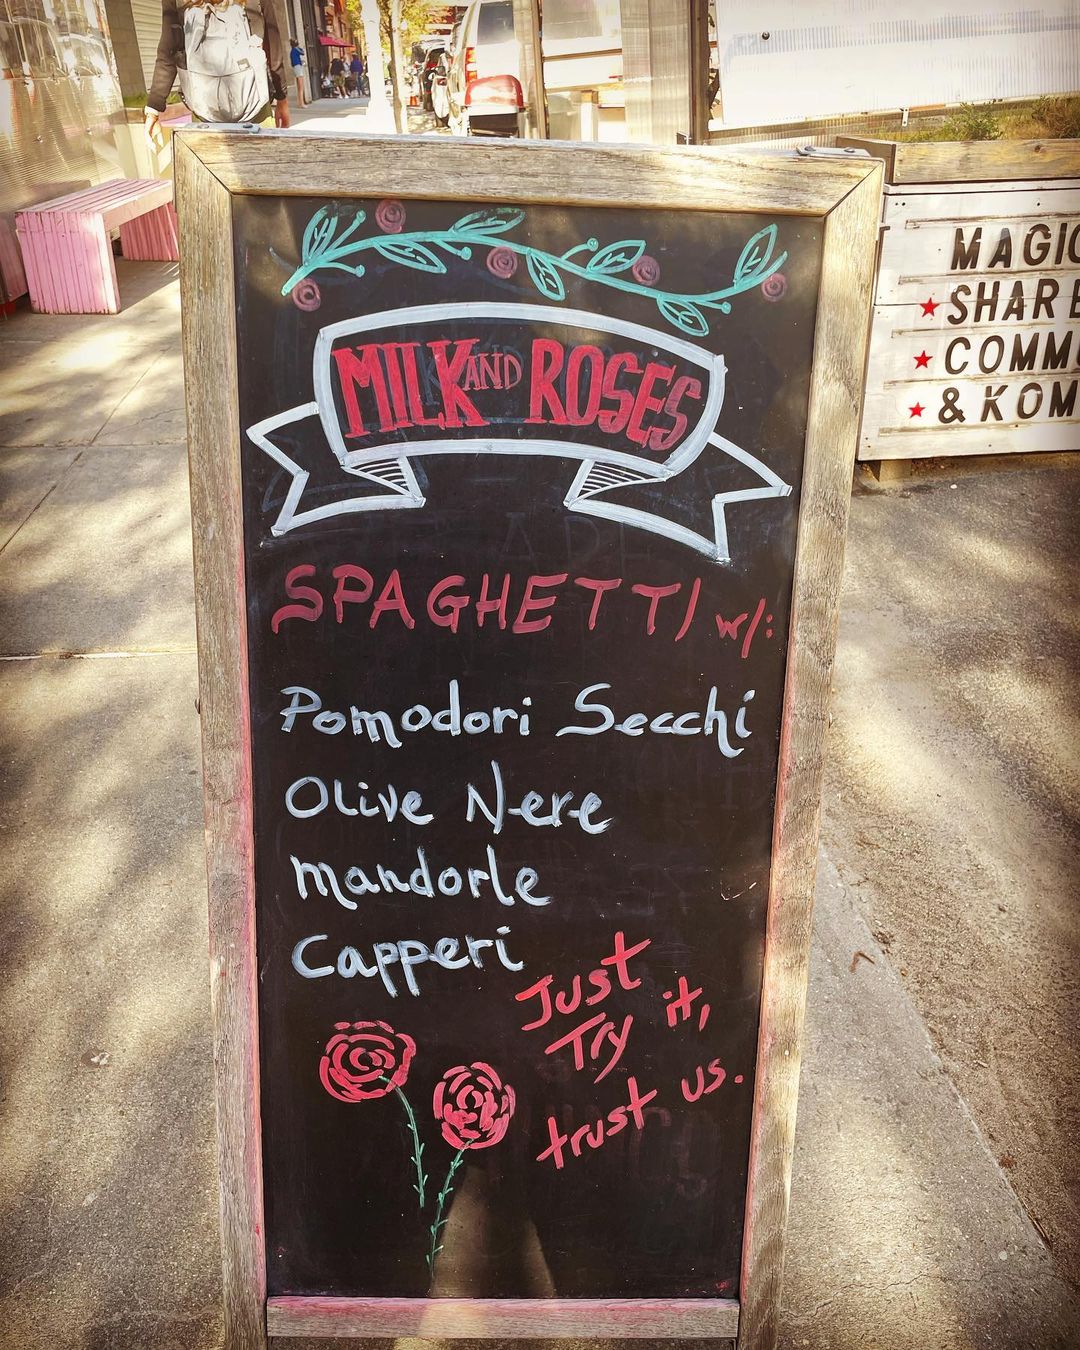 MILK AND ROSES
SPAGHETTI w/:
Pomodori Secchi
Olive Nere
Mandorle
Capperi
Just
Try it,
trust us.
MAGIC
★ SHARE
★ COMM
★ & KOM